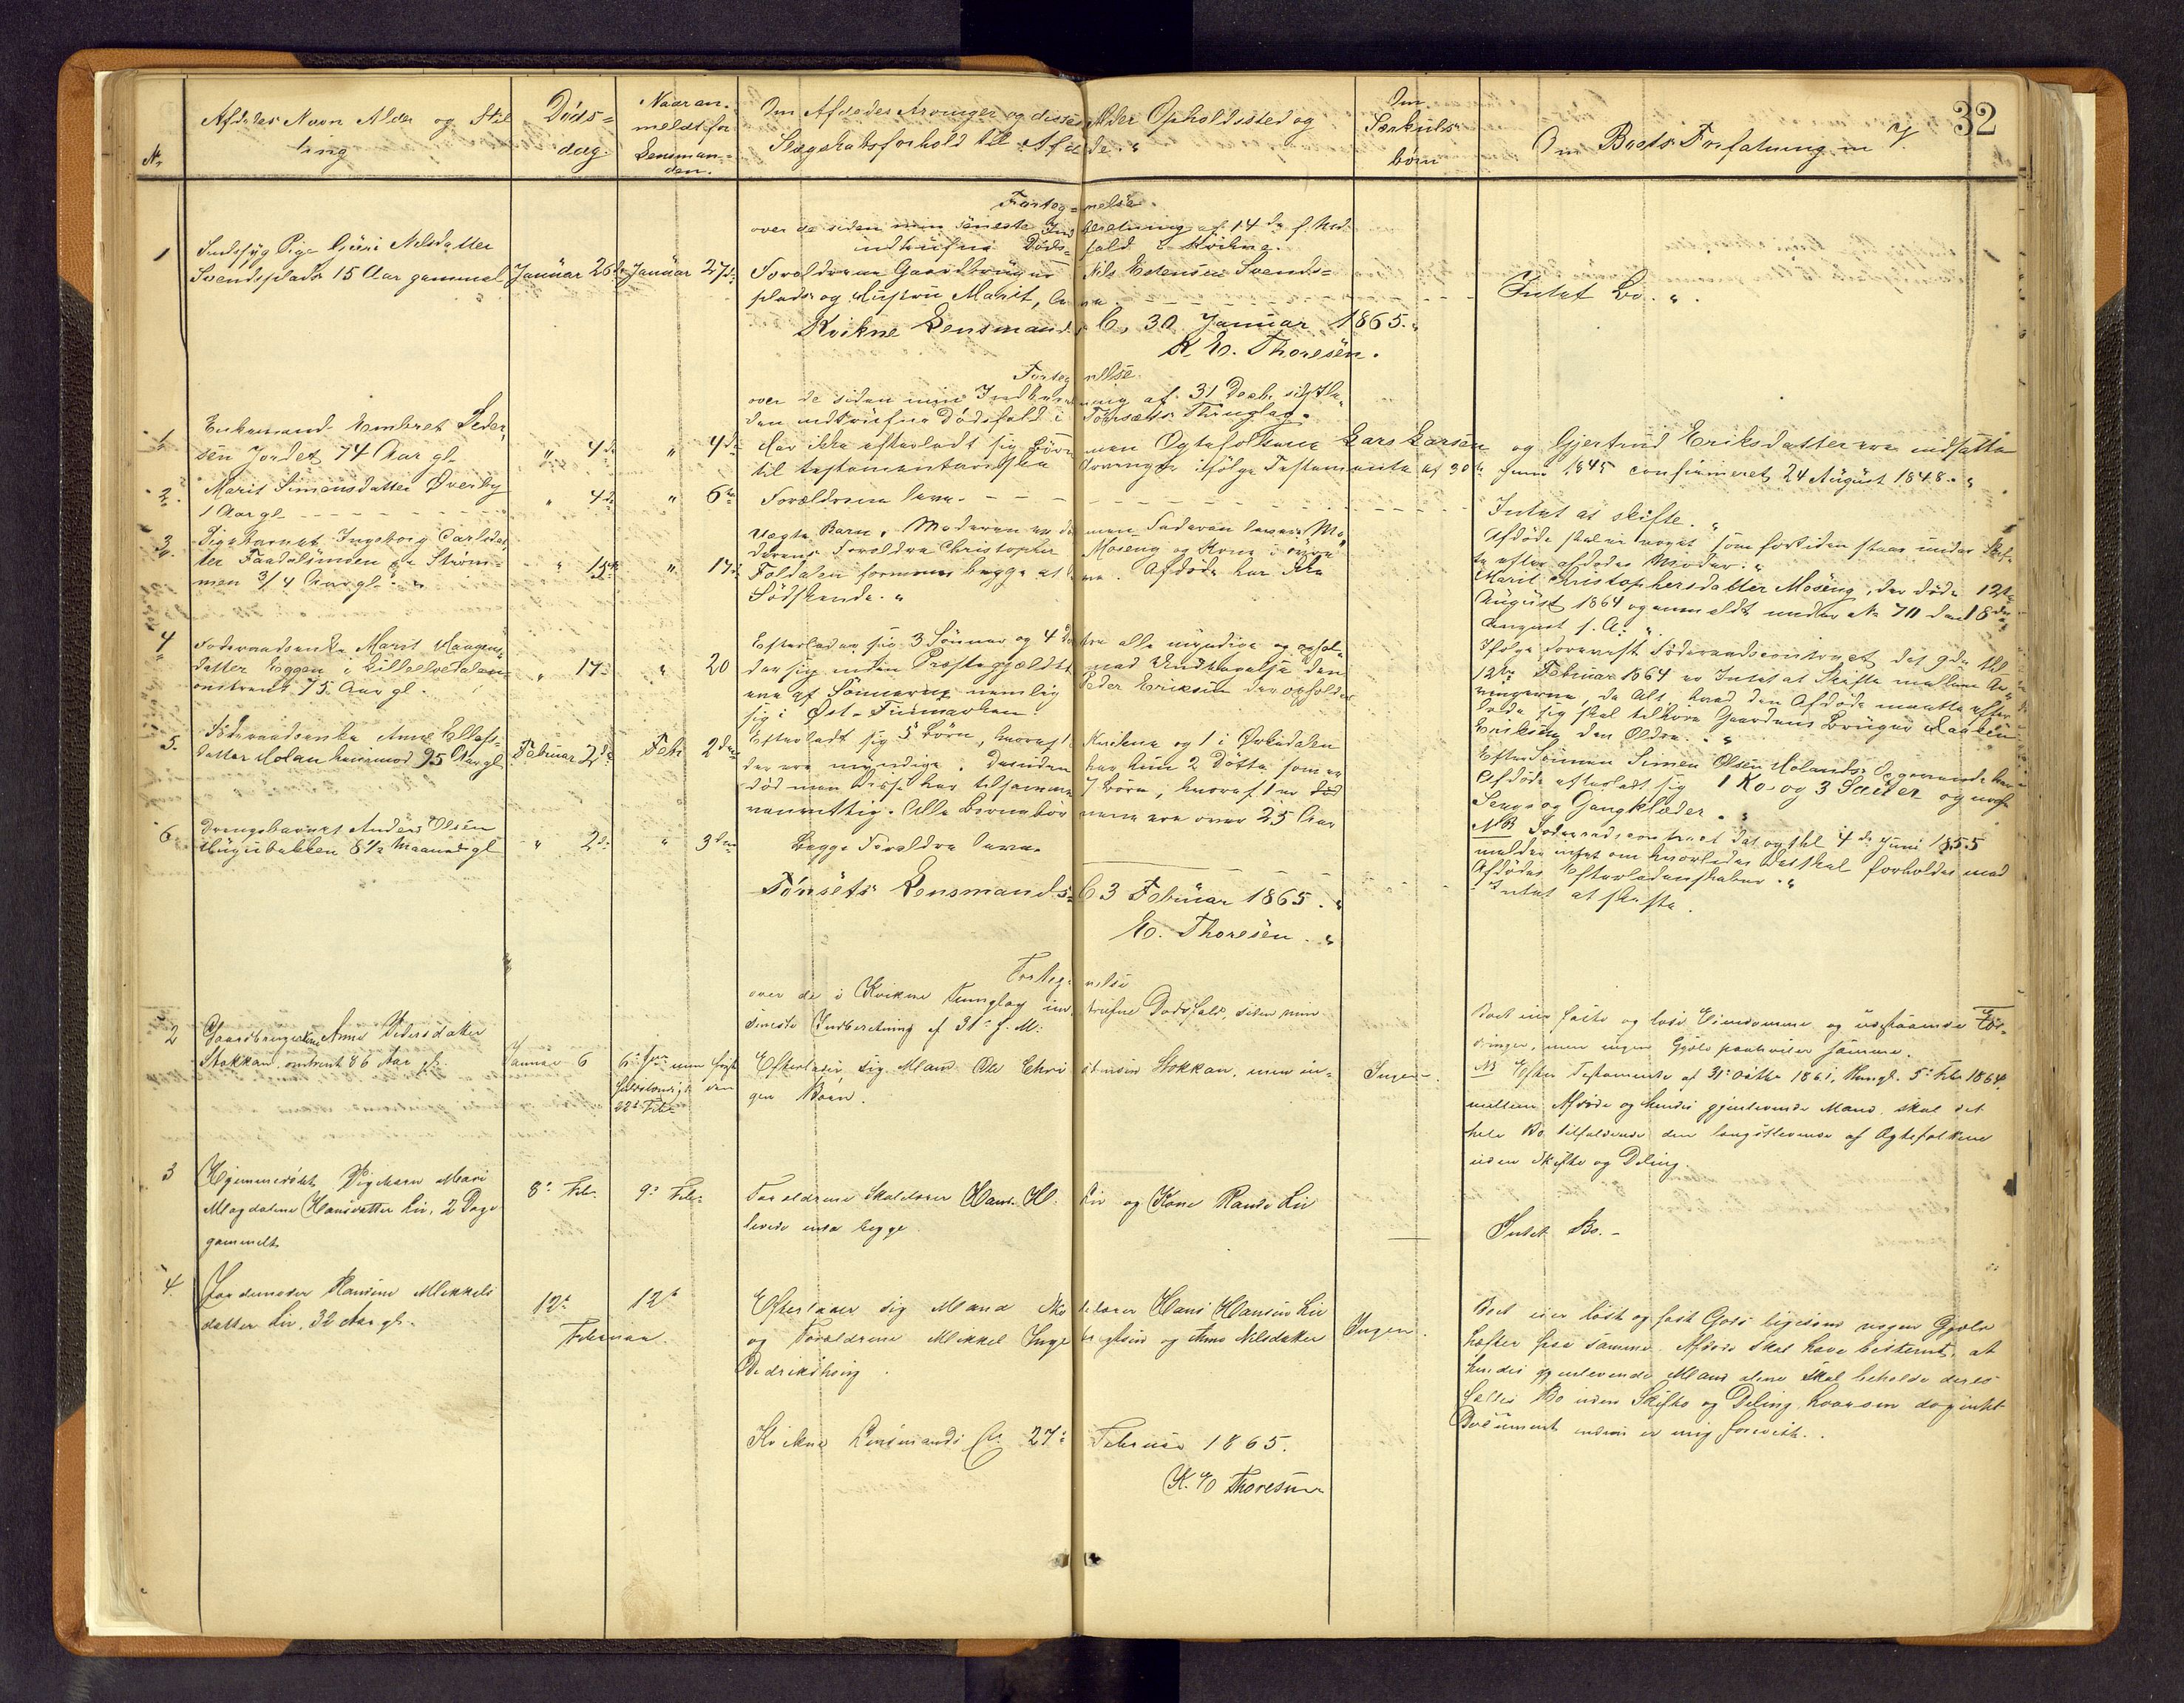 32
No
Afdødes Navn Alder og Stil
ling
Døds=
dag.
Naar an=
meldt for
Lensman=
den.
Om Afdødes Arvinger og disses Alder Opholdssted og
Slægskabsforhold til Afdøde. "
Om
Særkuls
børn
Om Boets Forfatning m V.
Forteg=nelse.
over de siden min seneste Indberetning af 14de f. Md.
indtrufne Dødsfald i Kvikne.
1
Indsyg Pige Guri Nilsdatter
Svendsplads 15 Aar gammel
Januar 26de
Januar 27de
Forældrene Gaardbruger Nils Estensen Svends=
plads og Hustru Marit,
Intet Bo. "
Kvikne Lensmands C. 30 Januar 1865. "
K E. Thoresen.
Fortegnelse
over de siden min Indberetning af 31 Decbr. sidstle
den indtrufne Dødsfald i Tønsæts Thinglag.
1
Enkemand Kembret Peder,
sen Jordet 74 Aar gl.
" 4de
" 4de
Har ikke efterladt sig Børn men Egtefolkene Lars Larsen og Gjertrud Eriksdatter ere indsatte
til testamentariske Arvinger ifølge Testamente af 30te Juni 1845 confirmeret 24 August 1848. "
2.
Marit Simensdatter Øverby
1 Aar gl.
" 4de
" 6te
Forældrene leve.
Intet at skifte. "
3
Pigebarnet Ingeborg Carlsdat,
ter Faadalsmoen Strøm=
men 3/4 Aar gl. "
" 15de
" 17de
Uægte Barn. Moderen er død men Faderen lever. Mo,
derens Forældre Christopher Moseng og Kone i
Foldalen formenes begge at leve. Afdøde har ikke
Sødskende. "
Afdøde skal noget som for tiden staar under Skif
te efter afdødes Moder. "
Marit Christophersdatter Moseng, der døde 12te
August 1864 og anmeldt under No 70 den 18de
August s. A. "
4
Foderraadsenke Marit Haagens
datter Eggen i Lilleelvedalen
omtrent 75 Aar gl.
" 17de
" 20
Efterlader sig 3 Sønner og 4 Døtre alle myndige og ophol,
der sig inden Præstegjældet med Undtagelse den
ene af Sønnerne nemlig Peder Eriksen der opholder
sig i Øst-Finmarken.
Ifølge Foderaadscontract dat 9de thl
12te Februar 1864 er Intet at Skifte mellem Ar,
vingerne, da Alt, hvad den Afdøde maatte efter
lade sig skal tilhøre Gaardens Bruger Haaken
Eriksen den Eldre. "
5.
Føderaadsenke Anne Ellefs=
datter Moland henimod 95 Aar gl
Februar 2de
Febr 2den
Efterladt sig 5 Børn, hvoraf Kvikne og 1 i Ørkedalen
der ere myndige. Desuden har hun 2 Døttre som er
død men disse har tilsammen 7 Børn, hvoraf 1 er død
vanvittig. Alle Børnebørnene ere over 25 Aar
Efter Sønnen Simen Olsen Molands Opgivende har
Afdøde efterladt sig 1 Ko og 3 Sauer og noget
Senge og Gangklæder. "
NB Foderaadscontract dat og thl 4de Juni 1855
melder intet om hvorledes det skal forholdes med
Afdødes Efterladenskaber. "
6.
Drengebarnet Anders Olsen
Haugebakken 8 1/2 Maaned gl
" 2de
" 3den
Begge Forældre leve.
Intet at skifte.
Tønsets Lensmands=C 3 Februar 1865. "
E. Thoresen. "
Forteg=nelse
over de i Kvikne Thinglag indtrufne Dødsfald, siden min
seneste Indberetning af 31te f. M:
2
Gaardbrugerkone Anne Pedersdatter
Stokkan, omtrent 86 Aar gl.
Januar 6
6te men først
den
22de Feb.
Efterlader sig Mand Ole Christensen Stokkan, men in=
gen Børn.
Ingen.
Boet eier faste og løse Eiendomme og udestaaende For=
dringer, men ingen Gjæld paahviler samme.
NB Efter Testamente af 31te Octbr 1861, thingl. 5te Feb 1864
mellem Afdøde og hendes gjenlevende Mand, skal det
hele Bo tilfaldende den længstlevende af Egtefolkene
uden Skifte og Deling.
3
Hjemmedøbt Pigebarn Mari
Magdalene Hansdatter Lie, 2 Dage
gammelt
8de Feb.
9de Feb.
Forældrene Skoleholder Hans H. Lie og Kone Randi Lie
levede begge
Intet Bo. -
4.
Jordemoder Randine Mikkels
datter Lie, 32 Aar gl.
12te
12te
Februar
Efterlader sig Mand Skoleholder Hans Hansen Lie
og Forældrene Mikkel Ingebrigtsen og Anne Nilsdatter
Vedrikshoug.
Ingen.
Boet eier løst og fast Gods ligesom nogen Gjæld
hefter paa samme. Afdøde skal have bestemt, at
hendes gjenlevende Mand alene skal beholde deres
fælles Bo uden Skifte og Deling, hvorom dog intet
Document endnu er mig forevist. .
Kvikne Lensmands C. 27de Februar 1865.
K. E Thoresen